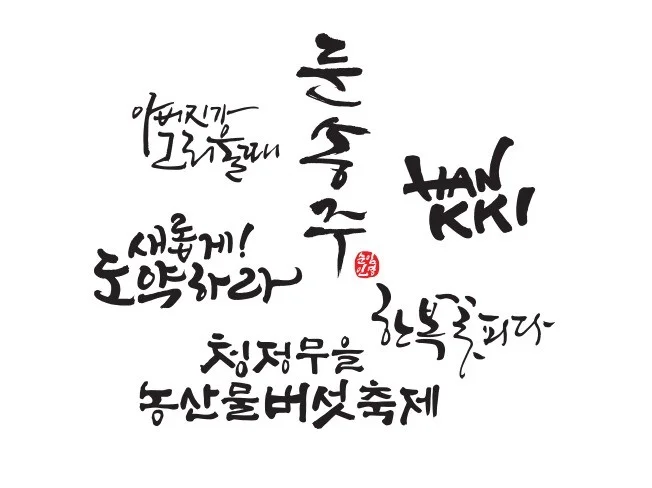 아버지가
그리울때
둔송주
HAN
KKI
새롭게!
도약하라
한복꽃피다
청정무을
농산물버섯축제